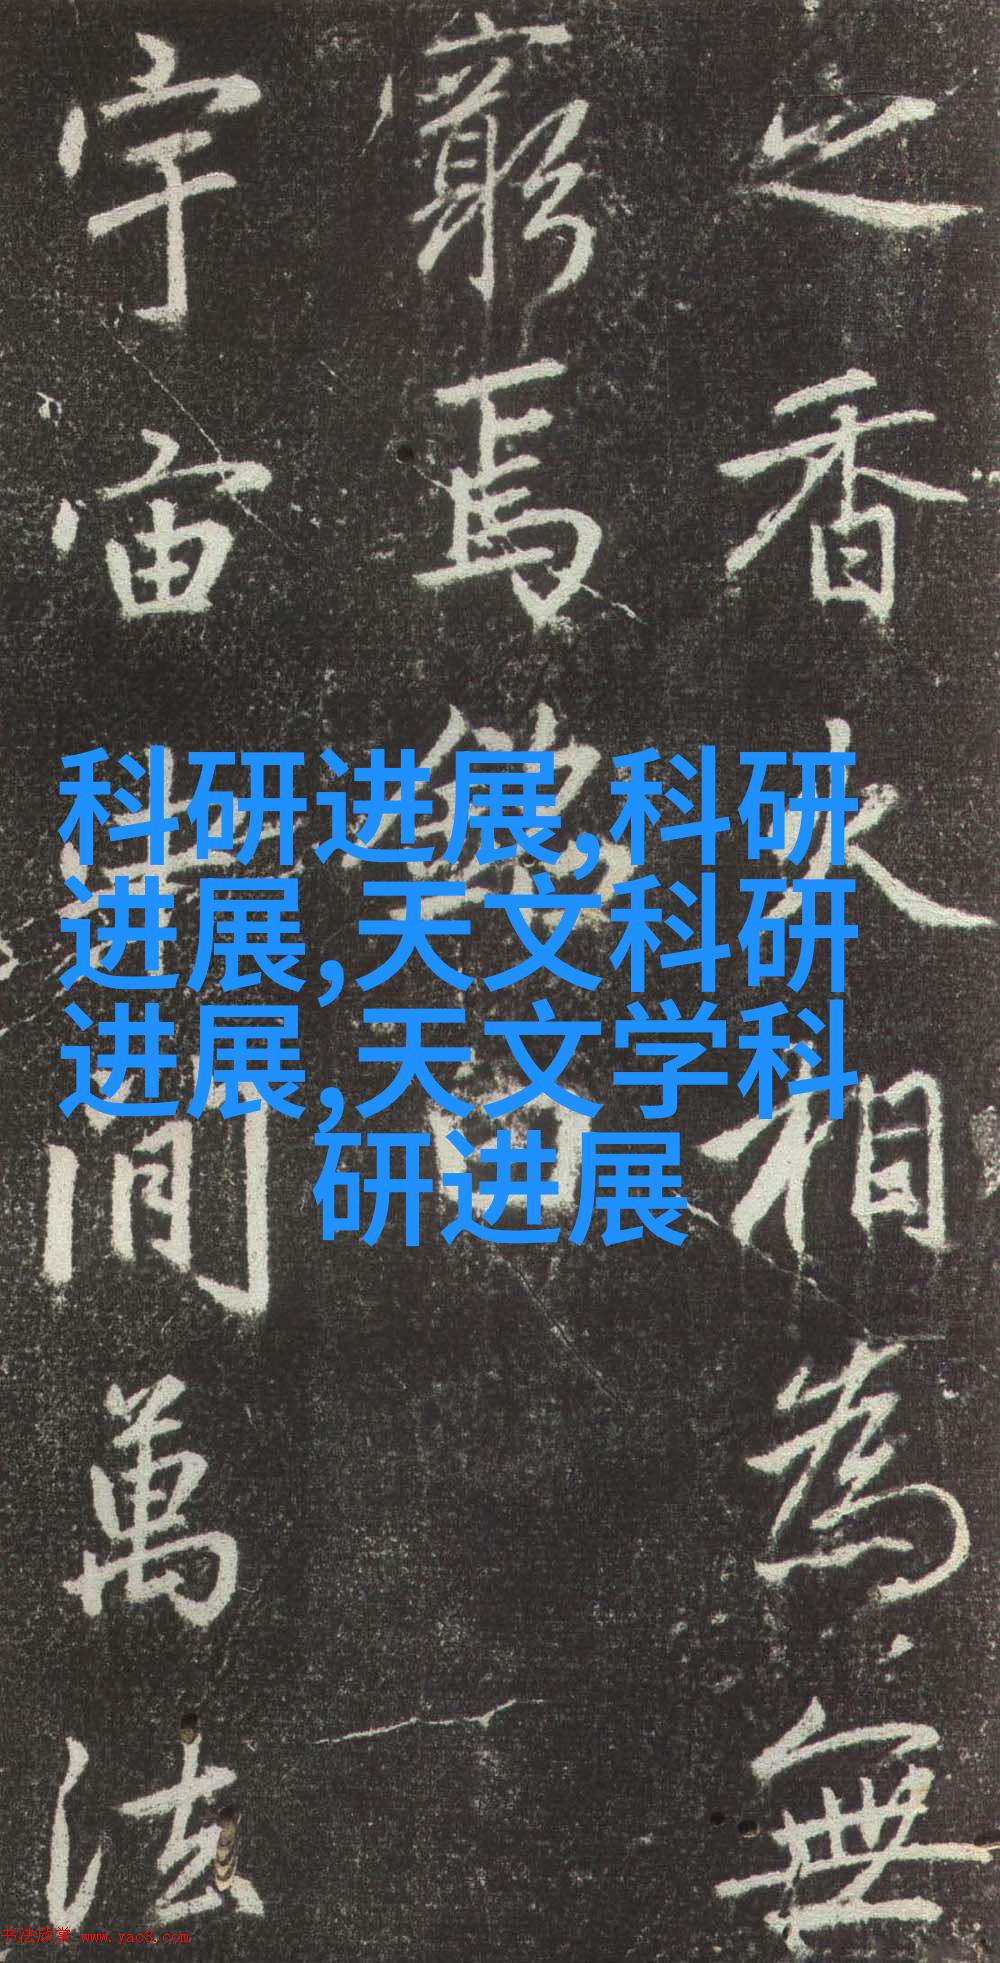 之香火相為無
窮焉銘曰
宇宙世間萬法
科研进展,科研
进展,天文科研
进展,天文学科
研进展
书法欣赏 www.yac8.com